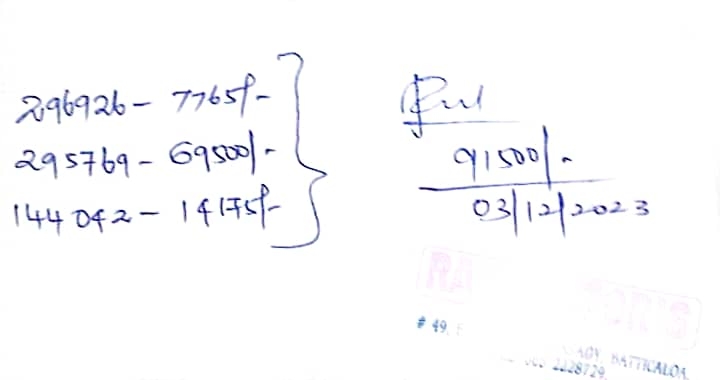 296926 - 7765/-
295769 - 69500/-
144042 - 14175/-
91500/-
03/12/2023
# 49,
BATTICALOA.
2228729.